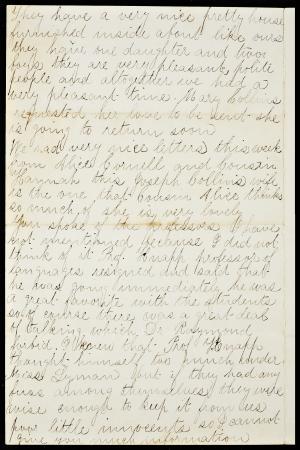 They have a very nice pretty house
furnished inside about like ours
they have one daughter and two
boys they are very pleasant, polite
people and altogether we had a
very pleasant time. Mary Collins
requested her love to be sent she
is going to return soon
We had very nice letters this week
from Alice Cornell and cousin
Hannah this Joseph Collins' wife
is the one that cousin Alice thinks
so much of she is very lovely
You spoke of the Professors I have
not mentioned because I did not
think of it Prof. Knapp professor of
languages resigned and said that
he was going immediately he was
a great favorite with the students
so of course there was a great deal
of talking which Dr. Raymond
forbid. I guess that Prof Knapp
thought himself too much under
Miss Lyman but if they had any
fuss among themselves they were
wise enough to keep it from us
poor little innocents so I cannot
give you much information